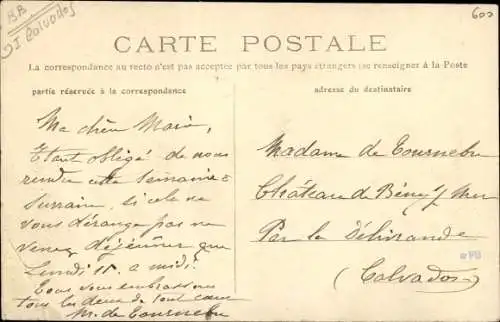 BB
I Calvados
600
CARTE POSTALE
La correspondance au recto n'est pas acceptée par tous les pays étrangers (se renseigner à la Poste
partie réservée à la correspondance
adresse du destinataire
Ma chère Marie,
Etant obligé de nous
rendre cette semaine à
si cela ne
vous dérange pas ne
venez déjeûner que
Lundi 11 à midi.
Nous vous embrassons
tous les deux de tout cœur
M. de Tournebu
Madame de Tournebu
Château de Bény s/ Mer
Par la Délivrande
(Calvados)
#PB